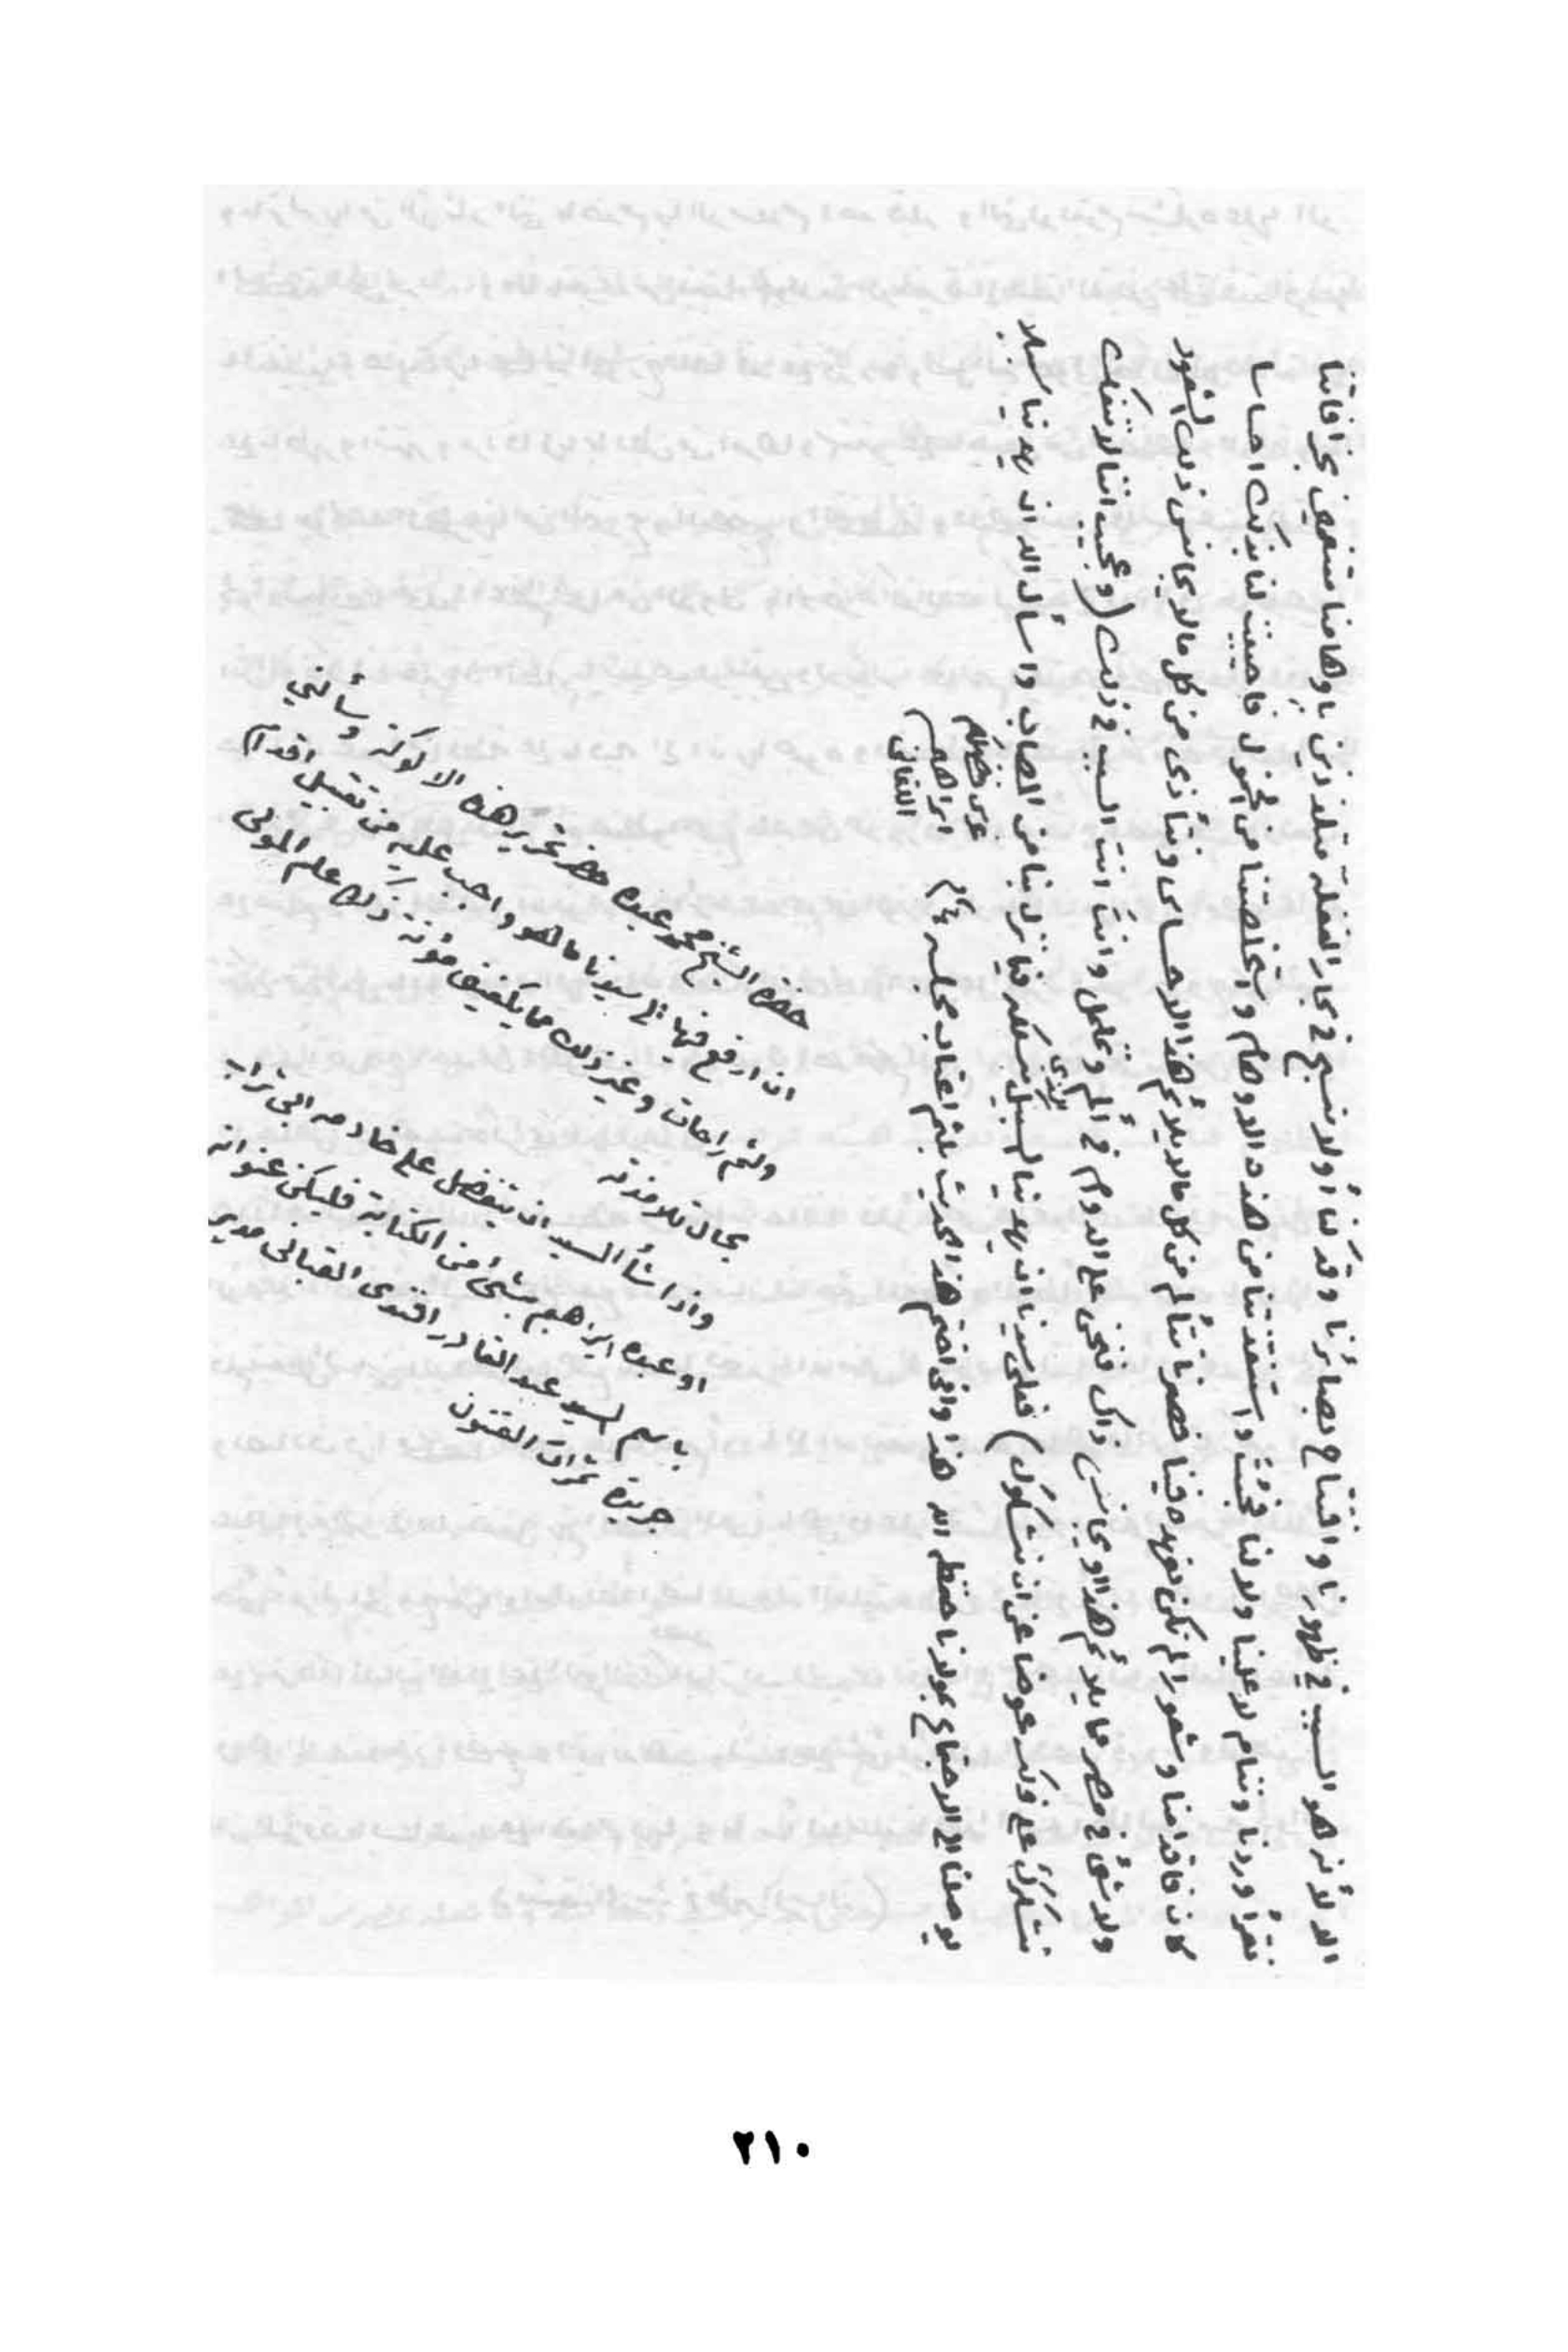 الا لأنه هو السبب في ظهورنا وافتتاح بصائرنا وقد كنا أولا نسبح في بحار الغفلة متلذذين بأوهامنا متنعمين بخرافاتنا
نقرأ وردنا وننام لا علينا ولا لنا فجئت واستنقذتنا من هذه الاوهام واستخلصتنا من الخمول فاحييت لنا بذلك احساسا
كان فاقدا منا وشعورا لم نكن نعهده فينا فصرنا نتألم من كل ما لا يلائم هذا الاحساس ونتأذى من كل ما لا يجانس ذلك الشعور
ولا شئ في مصر مما يلائم هذا او يجانس ذاك فنحن على الدوام في ألم وتململ وانت انت السبب في ذلك (وعجيب اننا لا ننفك
نشكرك على ذلك عوضا عن ان نشكوك) فعلى سيدنا ان يهدينا السبيل الذي نسلكه فيما نزل بنا من المصائب واسأل الله ان يهدينا سبلا
يوصلنا الى الاجتماع بمولانا حفظه الله هذا وانى اختم هذا الحديث بلثم اعتاب مجلسه
ابراهيم
اللقانى
حضرة الشيخ محمد عبده حضر تحرير هذه الالوكة وسألني
ان ارفع فيها الى سيدنا ما هو واجب عليه من تقبيل اقدام
ولثم راحات وغير ذلك مما يكفيني مؤنة ذكره علم المولى
بحال تلامذته
واذا شأ السيد ان يتفضل على خادمه ابى تراب
او عبده ابراهيم بشئ من الكتابة فليكن عنوانه
باسم السيد عبد القادر افندى القبانى مدير
جريدة ثمرات الفنون
٢١٠